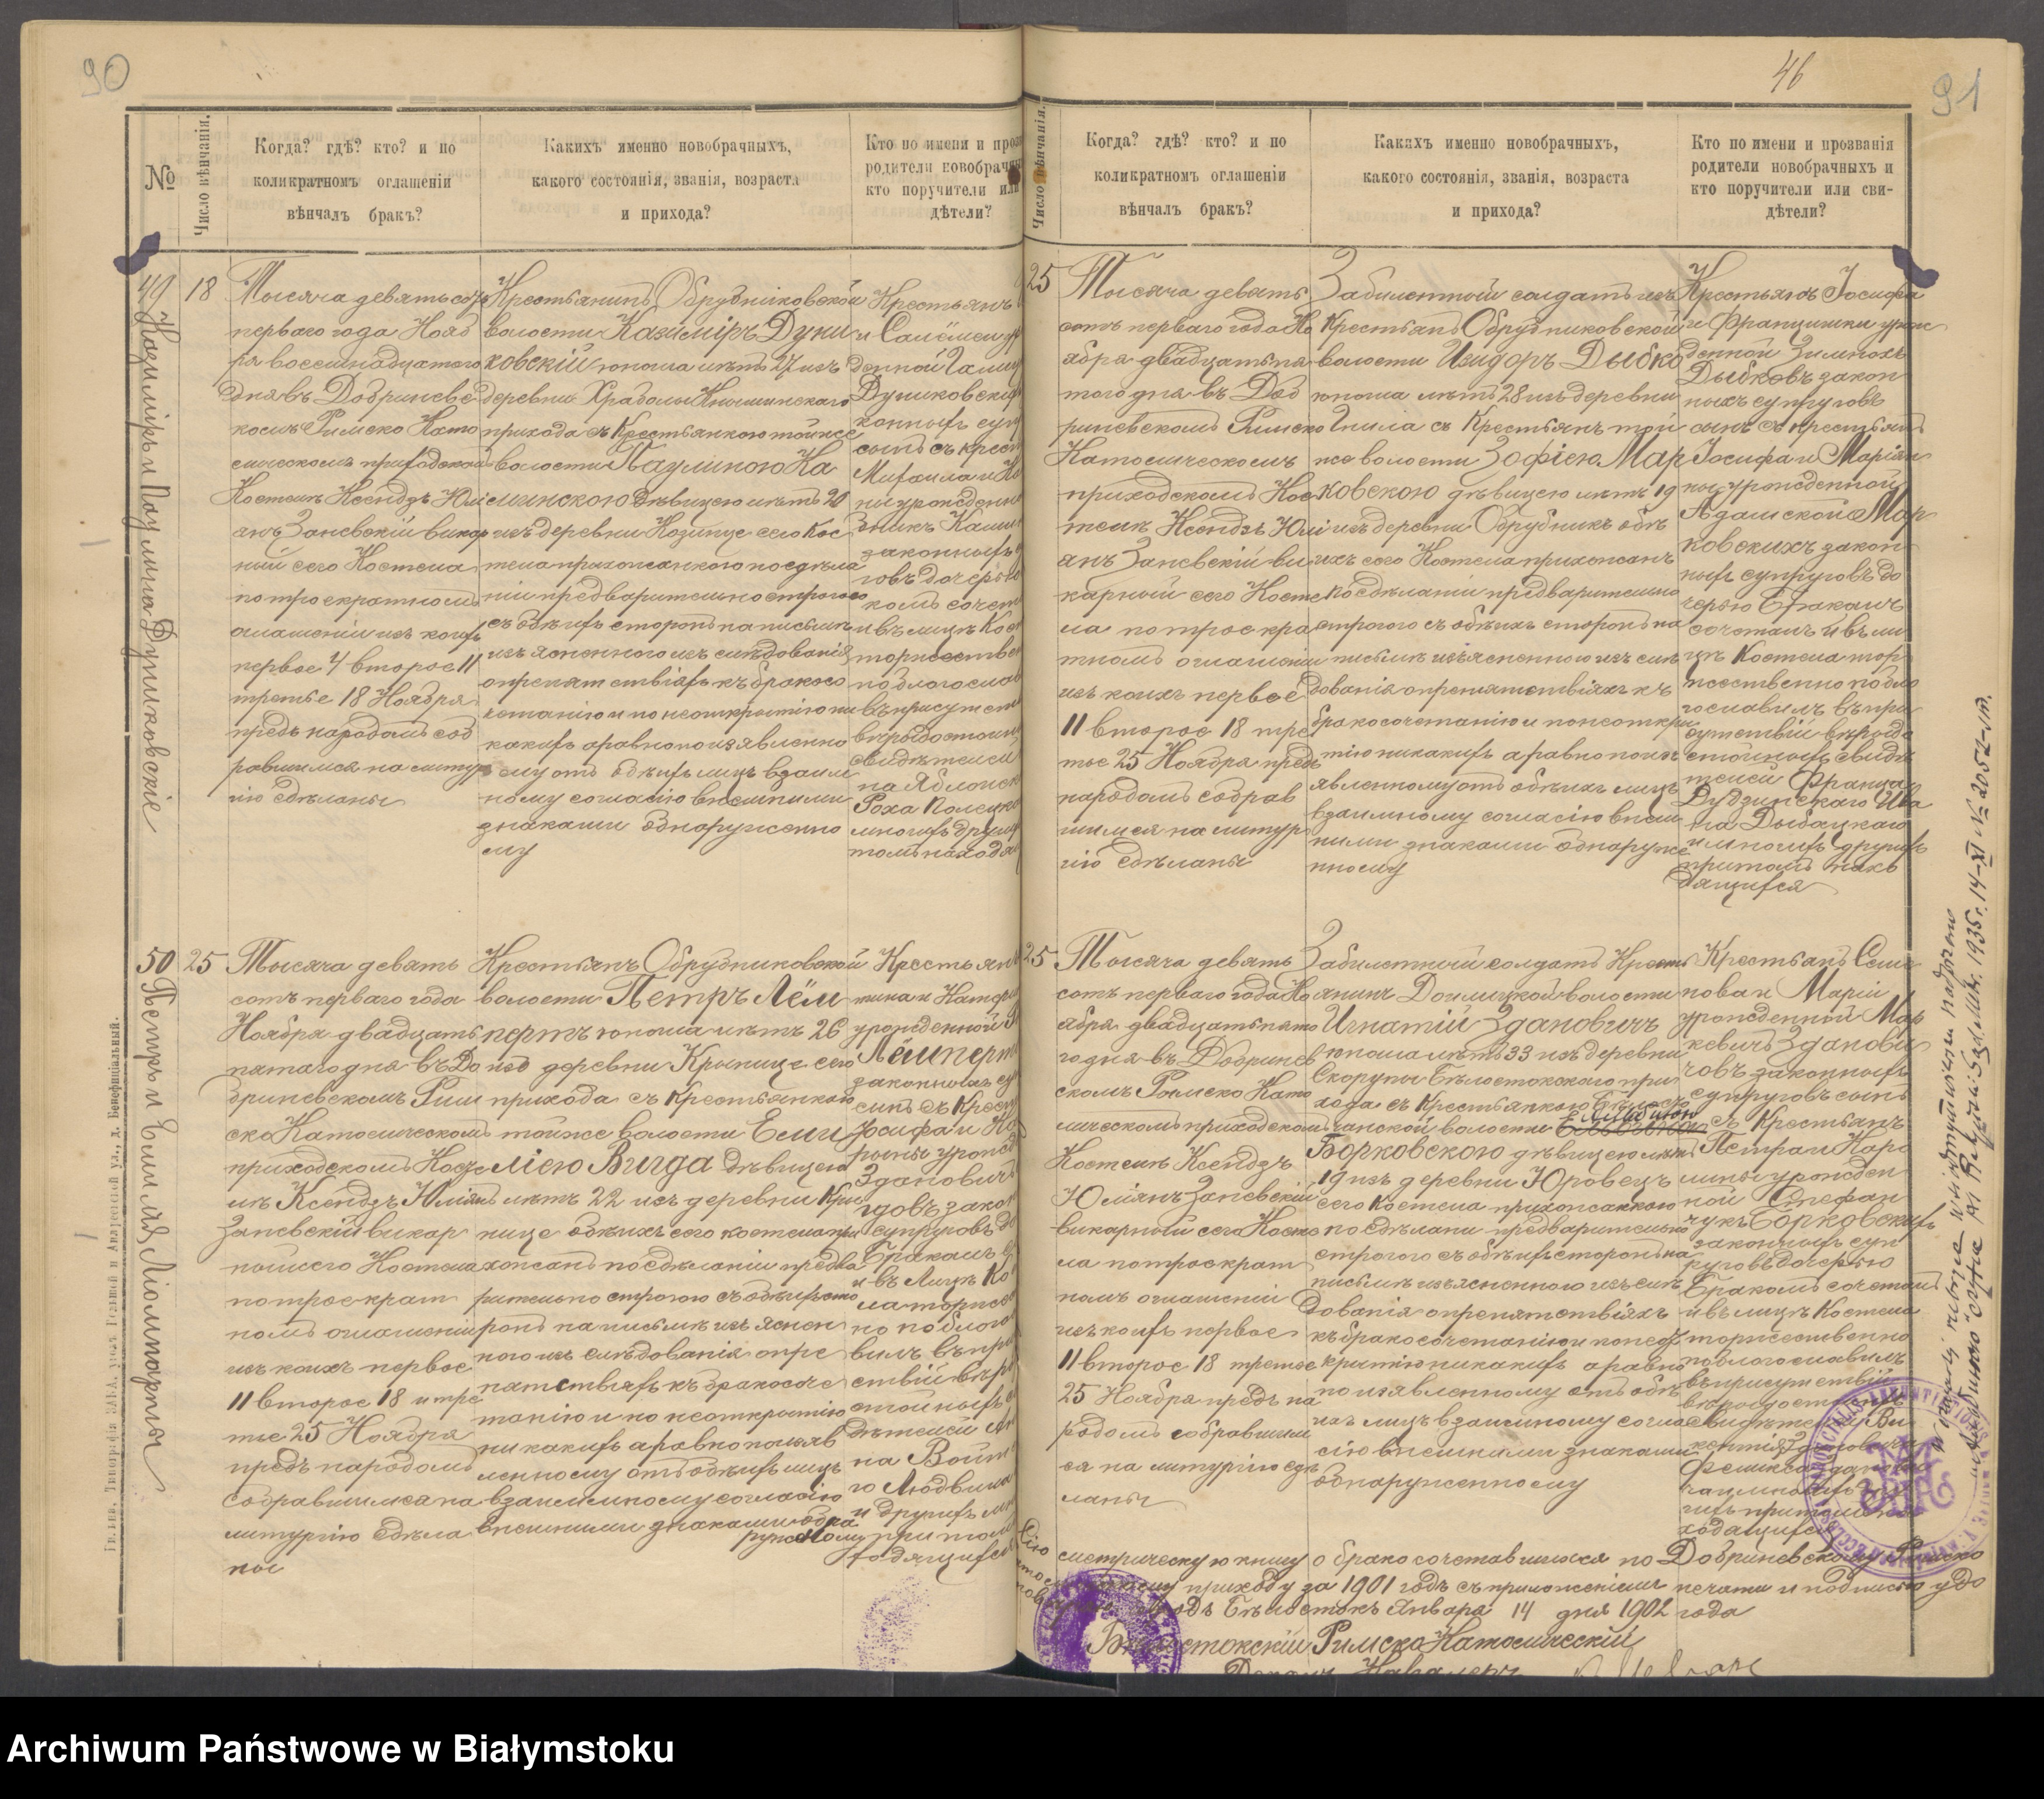 90
№
Число вѣнчанія.
Когда? гдѣ? кто? и по
коликратномъ оглашеніи
вѣнчалъ бракъ?
Какихъ именно новобрачныхъ,
какого состоянія, званія, возраста
и прихода?
Кто по имени и проз
родители новобрач
кто поручители ил
дѣтели?
49
Казимиръ и Паулина Дуниковскіе
18
Тысяча девятьсотъ
перваго года Нояб
ря восемнадцатого
дня въ Добриневс
комъ Римско Като
лическомъ приходскомъ
Костелѣ Ксендзъ Юлі
анъ Заневскій викар
ный сего Костела
по троекратномъ
оглашеніи изъ коихъ
первое 4 второе 11
третье 18 Ноября
предъ народомъ соб
равшимся на литур
гію сдѣланы
Крестьянинъ Обрубниковской
волости Казимиръ Дуни
ковскій юноша лѣтъ 27 изъ
деревни Храболы Кнышинскаго
прихода съ Крестьянкою тойже
волости Паулиною Ка
линскою дѣвицею лѣтъ 20
изъ деревни Козинце сего Кос
тела прихожанкою по сдѣла
ніи предварительно строгого
съ обѣихъ сторонъ на письмѣ
изъясненного изслѣдованія
о препятствіяхъ къ бракосо
четанію и по неоткрытію ни
какихъ а равно по изъявленно
му отъ обѣихъ лицъ взаим
ному согласію внешними
знаками обнаруженно
му
Крестьянъ
и Саломеи ур
денной
Дуниковски
конныхъ суп
сынъ съ крест
Михаила и
ни урожденно
законныхъ
говъ дочерью
комъ сочета
и въ лицѣ Кос
торжествен
поблагослав
въ присутст
вѣродостойн
свидѣтелей
на Яблонск
Роха
многихъ други
томъ находя
50
Петръ и Емилія Ліомперты
25
Тысяча девять
сотъ перваго года
Ноября двадцать
пятаго дня въ До
бриневскомъ Рим
ско Католическомъ
приходскомъ Косте
лѣ Ксендзъ Юліянъ
Заневскій викар
ный сего Костела
по троекрат
номъ оглашеніи
изъ коихъ первое
11 второе 18 и тре
тье 25 Ноября
предъ народомъ
собравшимся на
литургію сдѣла
ны
Крестьянъ Обрубниковской
волости Петръ Лём
пертъ юноша лѣтъ 26
изъ деревни Крынице сего
прихода съ Крестьянкою
тойже волости Еми
ліею Вигда дѣвицею
лѣтъ 22 изъ деревни Кры
нице обѣихъ сего костела при
хожанъ по сдѣланіи предва
рительно строгого съ обѣихъ сто
ронъ на письмѣ изъяснен
ного изслѣдованія о пре
пятствіяхъ къ бракосоче
танію и по неоткрытію
никакихъ а равно по изъяв
ленному отъ обѣихъ лицъ
взаимному согласію
внешними знаками обна
руженному
Крестьян
тина и Катер
урожденной
Лёмперт
законныхъ су
сынъ съ Крест
Іосифа и Ка
рины урожд
Здановичъ
законн
супруговъ до
Бракомъ
и въ Лицѣ Ко
ла торжеств
но поблаго
вилъ въ при
ствіи вѣро
стойныхъ
дѣтелей
на Войт
го Людвика
и другихъ мн
при томъ
ходящихся
Гродна, Типографія
46
91
Число вѣнчанія.
Когда? гдѣ? кто? и по
коликратномъ оглашеніи
вѣнчалъ бракъ?
Какихъ именно новобрачныхъ,
какого состоянія, званія, возраста
и прихода?
Кто по имени и прозванія
родители новобрачныхъ и
кто поручители или сви-
дѣтели?
25
Тысяча девять
сотъ перваго года Но
ября двадцать пя
того дня въ Доб
риневскомъ Римско
Католическомъ
приходскомъ Кос
телѣ Ксендзъ Юлі
анъ Заневскій ви
карный сего Косте
ла по троекра
тномъ оглашеніи
изъ коихъ первое
11 второе 18 тре
тье 25 Ноября предъ
народомъ собрав
шимся на литур
гію сдѣланы
Забилетной солдатъ изъ
Крестьянъ Обрубниковской
волости Изидоръ Дыбко
юноша лѣтъ 28 изъ деревни
Гнила съ Крестьянъ той
же волости Зофіею Мар
ковскою дѣвицею лѣтъ 19
изъ деревни Обрубникъ обѣ
ихъ сего Костела прихожанъ
по сдѣланіи предварительно
строгого съ обѣихъ сторонъ на
письмѣ изъясненного изслѣ
дованія о препятствіяхъ къ
бракосочетанію и по неоткры
тію никакихъ а равно по изъ
явленному отъ обѣихъ лицъ
взаимному согласію внеш
ними знаками обнаруже
нному
Крестьянъ Іосифа
и Францишки урож
денной Зимнохъ
Дыбковъ закон
ныхъ супруговъ
сынъ съ Крестьянъ
Іосифа и Маріян
ны урожденной
Адамской Мар
ковскихъ закон
ныхъ супруговъ до
черью Бракомъ
сочеталъ и въ ли
цѣ Костела тор
жественно побла
гославилъ въ при
сутствіи вѣродо
стойныхъ свидѣ
телей Франца
Дудзинскаго Ива
на Дыбацкаго
и многихъ другихъ
притомъ нахо
дящихся
25
Тысяча девять
сотъ перваго года Но
ября двадцать пято
го дня въ Добринев
скомъ Римско Като
лическомъ приходскомъ
Костелѣ Ксендзъ
Юліянъ Заневскій
викарный сего Косте
ла по троекрат
номъ оглашеніи
изъ коихъ первое
11 второе 18 третье
25 Ноября предъ на
родомъ собравшим
ся на литургію сдѣ
ланы
Забилетной солдатъ Кресть
янинъ Доилидской волости
Игнатій Здановичъ
юноша лѣтъ 33 изъ деревни
Скорупы Бѣлостокского при
хода съ Крестьянкою Бѣлосто
Альбиною
чанской волости
Борковскою дѣвицею лѣтъ
19 изъ деревни Юровецъ
сего Костела прихожанкою
по сдѣланіи предварительно
строгого съ обѣихъ сторонъ на
письмѣ изъясненного изслѣ
дованія о препятствіяхъ
къ бракосочетанію и по неот
крытію никакихъ а равно
по изъявленному отъ обѣ
ихъ лицъ взаимному согла
сію внешними знаками
обнаруженному
Крестьянъ Семе
нова и Маріи
урожденной Мар
кевичъ Здановичъ
човъ законныхъ
супруговъ сынъ
съ Крестьянъ
Петра и Каро
лины урожден
ной Стефан
чукъ Борковскихъ
законныхъ суп
руговъ дочерью
Бракомъ сочеталъ
и въ лицѣ Костела
торжественно
поблагославилъ
въ присутствіи
вѣродостойныхъ
свидѣтелей Ви
кентія Здановича
Феликса Здано
ча и многихъ дру
гихъ притомъ на
ходящихся
Сію
метрическую книгу о бракосочетавшихся по Добриневскому Римско
приходу за 1901 годъ съ приложеніемъ печати и подписью удо
Бѣлостокъ Января 14 дня 1902 года
Бѣлостокскій Римско Католическій
Деканъ
1935 r. 14-XI № 2052-
Archiwum Państwowe w Białymstoku